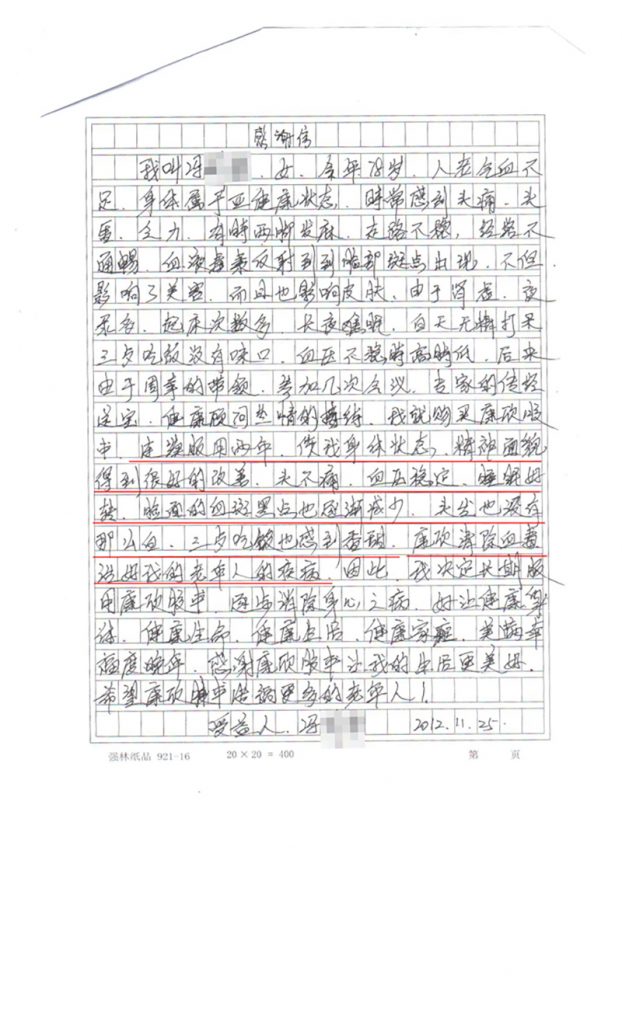 感谢信
我叫冯 、女、今年78岁、人老气血不
足、身体属于亚健康状态、时常感到头痛、头
晕、乏力、有时两脚发麻、走路不稳，经络不
通畅、血液毒素反射到到脸部斑点出现、不但
影响了美容、而且也影响皮肤、由于肾虚、夜
尿多、起床次数多、长夜难眠、白天无精打采
三歺吃饭没有味口、血压不稳时高时低、后来
由于同事的带领、参加几次会议、专家的传经
送宝、健康顾问热情的，我就购买康欣胶
串、连续服用两年、使我身体状态、精神面貌
得到很好的改善、头不痛、血压稳定、睡眠好
转、脸面的血斑黑点也逐渐减少、头发也没有
那么白、三歺吃饭也感到香甜、康欣消除血毒
治好我的老年人的疾病、因此、我决定长期服
用康欣胶串、逐步消除身心之病、好让健康身
体、健康生命、健康生活、健康家庭、美满幸
福度晚年、感谢康欣胶串让我的生活更美好、
希望康欣胶串造福更多的老年人！
受益人、冯 2012.11.25.
强林纸品 921-16 20×20=400 第 页